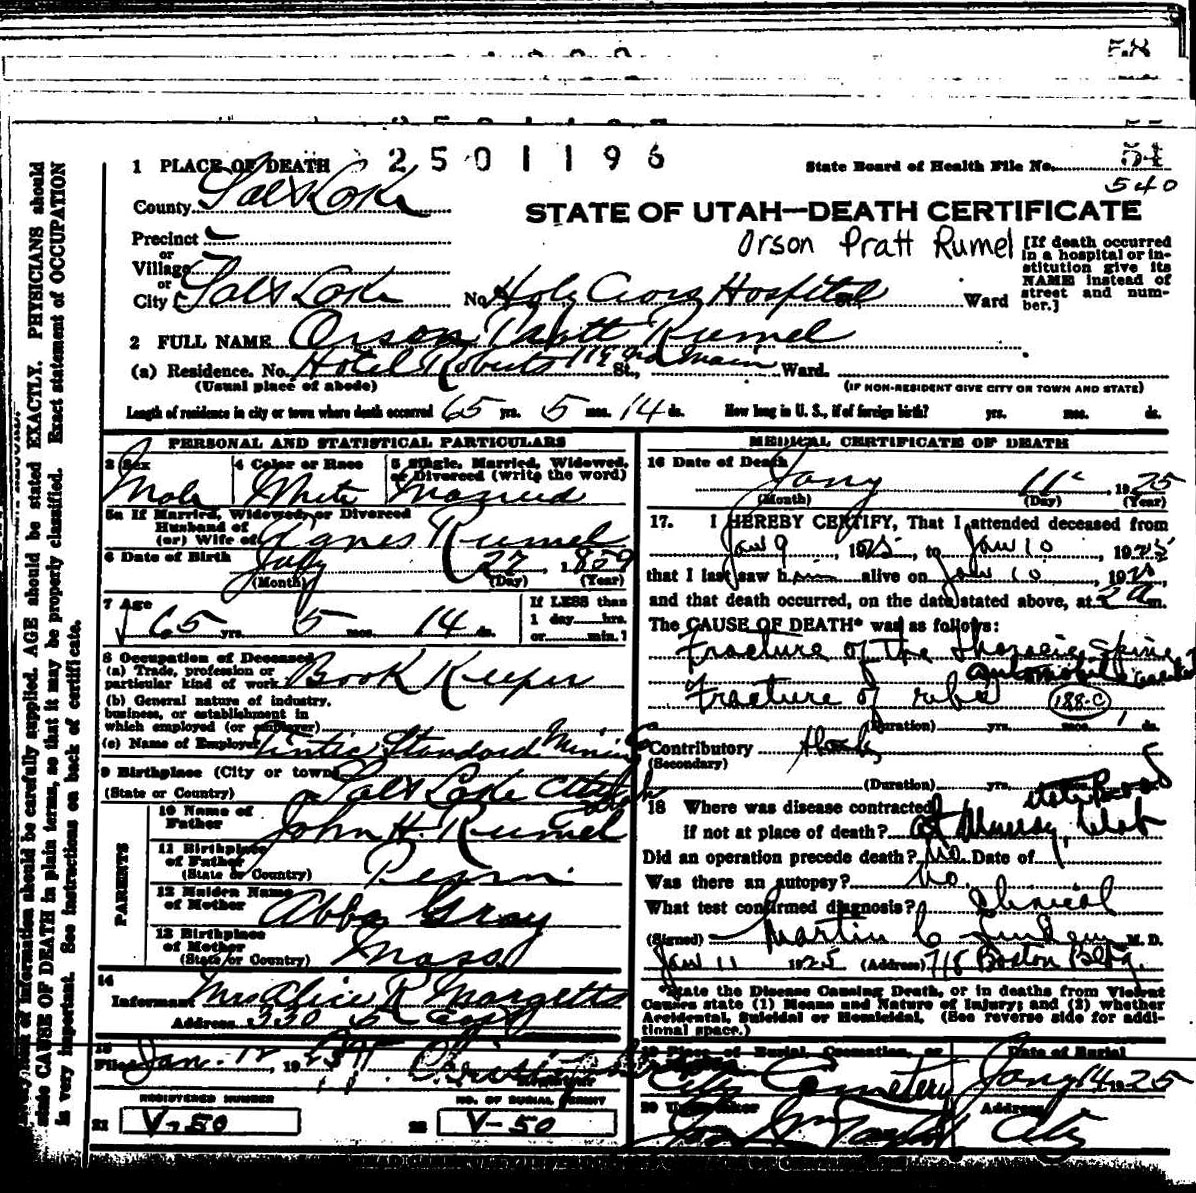 1 PLACE OF DEATH 2501196
State Board of Health File No. 54
540
County Salt Lake
STATE OF UTAH—DEATH CERTIFICATE
Orson Pratt Rumel
Precinct
or
Village
or
City Salt Lake No. Holy Cross Hospital St., Ward
[If death occurred in a hospital or institution give its NAME instead of street and number.]
2 FULL NAME Orson Pratt Rumel
(a) Residence. No. Hotel Roberts St., Main Ward.
(Usual place of abode) (IF NON-RESIDENT GIVE CITY OR TOWN AND STATE)
Length of residence in city or town where death occurred 65 yrs. 5 mos. 14 ds. How long in U. S., if of foreign birth? yrs. mos. ds.
PERSONAL AND STATISTICAL PARTICULARS
3 Sex
Male
4 Color or Race
White
5 Single, Married, Widowed, or Divorced (write the word)
Married
5a If Married, Widowed, or Divorced
Husband of
(or) Wife of Agnes Rumel
6 Date of Birth July 27, 1859
(Month) (Day) (Year)
7 Age
65 yrs. 5 mos. 14 ds.
If LESS than
1 day hrs.
or min.?
8 Occupation of Deceased
(a) Trade, profession or
particular kind of work Book Keeper
(b) General nature of industry,
business, or establishment in
which employed (or employer)
(c) Name of Employer Tintic Standard Mining Co
9 Birthplace (City or town)
(State or Country) Salt Lake City Utah
PARENTS
10 Name of
Father John H. Rumel
11 Birthplace
of Father
(State or Country) Penn
12 Maiden Name
of Mother Abba Gray
13 Birthplace
of Mother
(State or Country) Mass
14
Informant Mrs Alice R Margetts
Address 330 6 East
15
Filed Jan. 12, 1925
REGISTERED NUMBER
21 V-50
NO. OF BURIAL PERMIT
22 V-50
MEDICAL CERTIFICATE OF DEATH
16 Date of Death Jany 11, 1925
(Month) (Day) (Year)
17. I HEREBY CERTIFY, That I attended deceased from
Jan 9, 1925, to Jan 10, 1925
that I last saw him alive on Jan 10, 1925,
and that death occurred, on the date stated above, at 2 a m.
The CAUSE OF DEATH* was as follows:
Fracture of the thoracic spine
Automobile accident
Fracture of ribs 188-C
(Duration) yrs. mos. 1 ds.
Contributory Shock
(Secondary)
(Duration) yrs. mos. ds.
18 Where was disease contracted State Road
if not at place of death? at Murray, Utah
Did an operation precede death? No. Date of
Was there an autopsy? No.
What test confirmed diagnosis? Clinical
(Signed) Martin C Lindem M. D.
Jan 11 1925 (Address) 718 Boston Bldg.
*State the Disease Causing Death, or in deaths from Violent
Causes state (1) Means and Nature of Injury; and (2) whether
Accidental, Suicidal or Homicidal. (See reverse side for addi-
tional space.)
19 Place of Burial, Cremation, or
City Cemetery
Date of Burial
Jany 14 1925
20 Undertaker
Jos Wm Taylor
Address
City
information should be carefully supplied. AGE should be stated EXACTLY. PHYSICIANS should
state CAUSE OF DEATH in plain terms, so that it may be properly classified. Exact statement of OCCUPATION
is very important. See instructions on back of certificate.